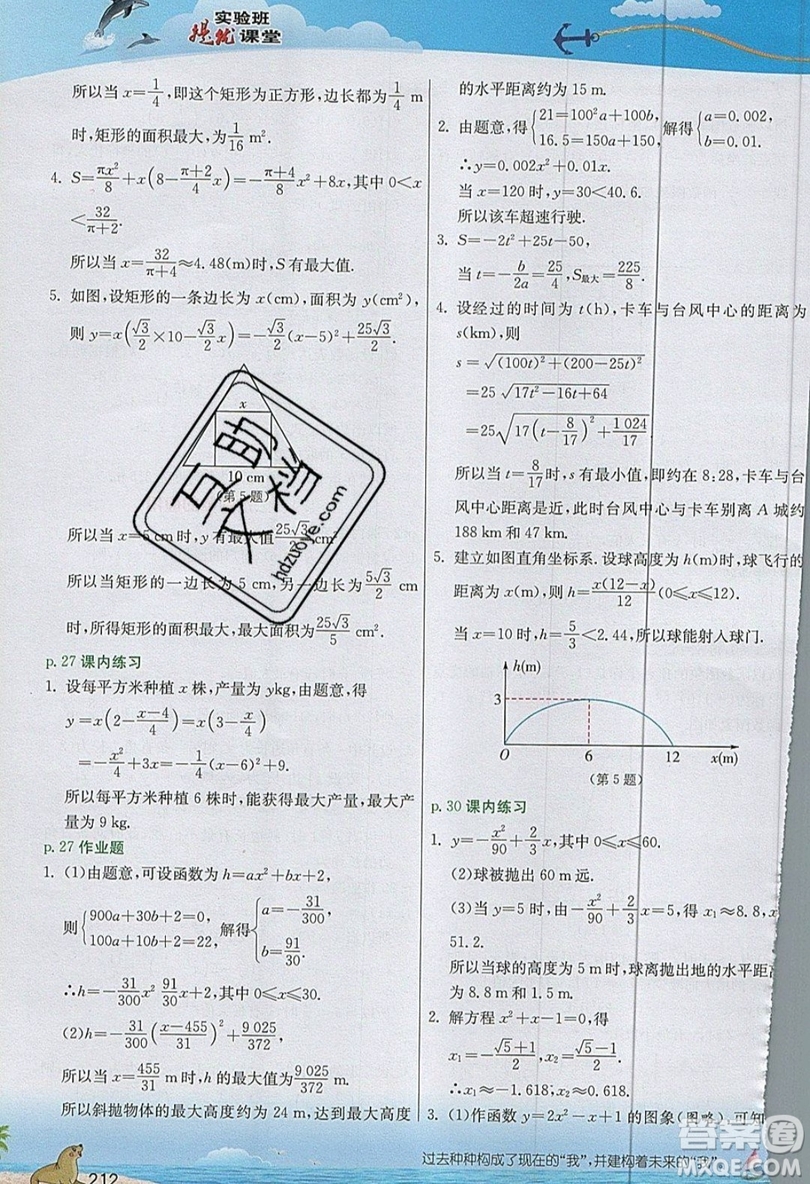 实验班
提优课堂
所以当 x=1/4，即这个矩形为正方形，边长都为 1/4 m
时，矩形的面积最大，为 1/16 m².
4. S=πx²/8+x(8-(π+2)/4 x)=-(π+4)/8 x²+8x，其中 0<x
<32/(π+2).
所以当 x=32/(π+4)≈4.48(m)时，S有最大值.
5. 如图，设矩形的一条边长为 x(cm)，面积为 y(cm²)，
则 y=x(√3/2×10-√3/2 x)=-√3/2(x-5)²+25√3/2.
x
10 cm
(第5题)
所以当 x=5 cm时，y有最大值 25√3/2 cm²
所以当矩形的一边长为 5 cm，另一边长为 5√3/2 cm
时，所得矩形的面积最大，最大面积为 25√3/5 cm².
p.27 课内练习
1. 设每平方米种植 x 株，产量为 ykg，由题意，得
y=x(2-(x-4)/4)=x(3-x/4)
=-x²/4+3x=-1/4(x-6)²+9.
所以每平方米种植 6 株时，能获得最大产量，最大产
量为 9 kg.
p.27 作业题
1. (1)由题意，可设函数为 h=ax²+bx+2，
则{900a+30b+2=0, 100a+10b+2=22, 解得{a=-31/300, b=91/30.
∴h=-31/300 x² 91/30 x+2，其中 0≤x≤30.
(2)h=-31/300(x-455/31)²+9 025/372，
所以当 x=455/31 m 时，h 有最大值 9 025/372 m.
所以斜抛物体的最大高度约为 24 m，达到最大高度
212
的水平距离约为 15 m.
2. 由题意，得{21=100²a+100b, 16.5=150a+150, 解得{a=0.002, b=0.01.
∴y=0.002x²+0.01x.
当 x=120 时，y=30<40.6.
所以该车超速行驶.
3. S=-2t²+25t-50，
当 t=-b/2a=25/4，S最大=225/8.
4. 设经过的时间为 t(h)，卡车与台风中心的距离为
s(km)，则
s=√((100t)²+(200-25t)²)
=25√(17t²-16t+64)
=25√(17(t-8/17)²+1 024/17)
所以当 t=8/17时，s 有最小值，即约在 8:28，卡车与台
风中心的距离是近，此时台风中心与卡车别离 A 城约
188 km 和 47 km.
5. 建立如图直角坐标系.设球高度为 h(m)时，球飞行的
距离为 x(m)，则 h=x(12-x)/12(0≤x≤12).
当 x=10 时，h=5/3<2.44，所以球能射入球门.
h(m)
3
O 6 12 x(m)
(第5题)
p.30 课内练习
1. y=-x²/90+2/3 x，其中 0≤x≤60.
(2)球被抛出 60 m 远.
(3)当 y=5 时，由 5=-x²/90+2/3 x，得 x₁≈8.8,x
51.2.
所以当球的高度为 5 m时，球离抛出地的水平距
为 8.8 m和 1.5 m.
2. 解方程 x²+x-1=0，得
x₁=-(√5+1)/2，x₂=(√5-1)/2.
∴x₁≈-1.618;x₂≈0.618.
3. (1)作函数 y=2x²-x+1 的图象(图略)，可知
过去种种构成了现在的“我”，并建构着未来的“我”
互助文档
hdzuoye.com
答案圈